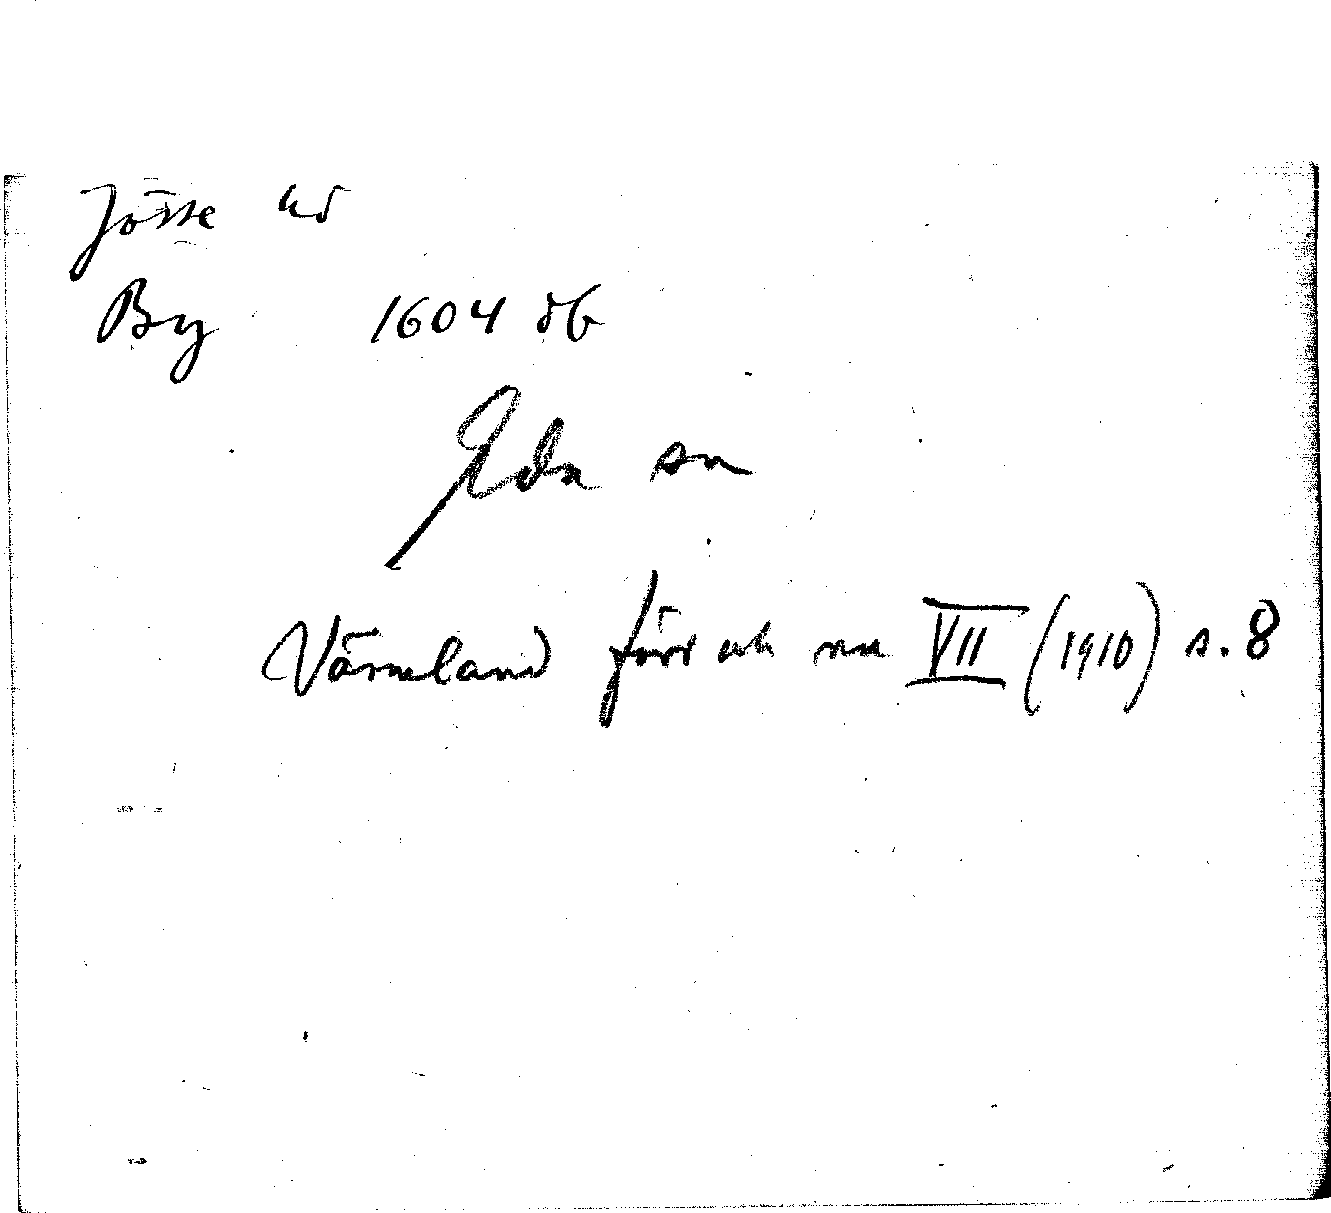 Jösse hd
By 1604 öb
Eda sn
Värmland förr och nu VII (1910) s. 8